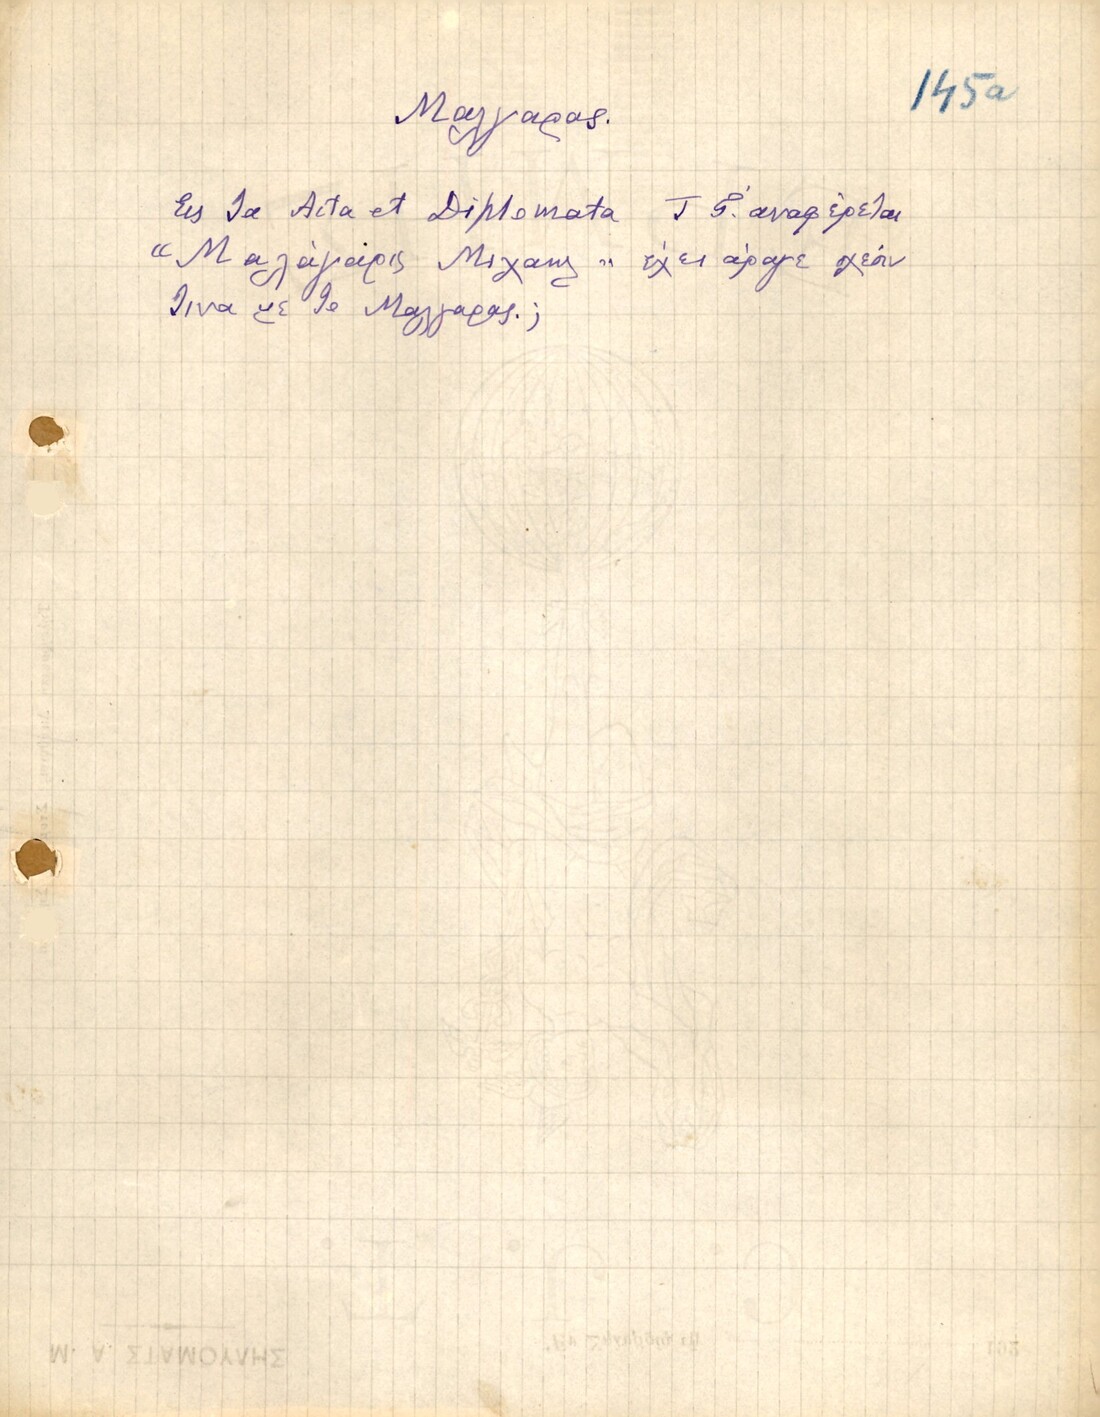 145α
Μαλγαρας.
Εις τα Acta et Diplomata Τ ς'. αναφέρεται
“Μαλάγάρις Μιχαηλ „ έχει άραγε σχέσιν
τινα με το Μαλγαρας. ;
Μ. Α. ΣΤΑΜΟΥΛΗΣ